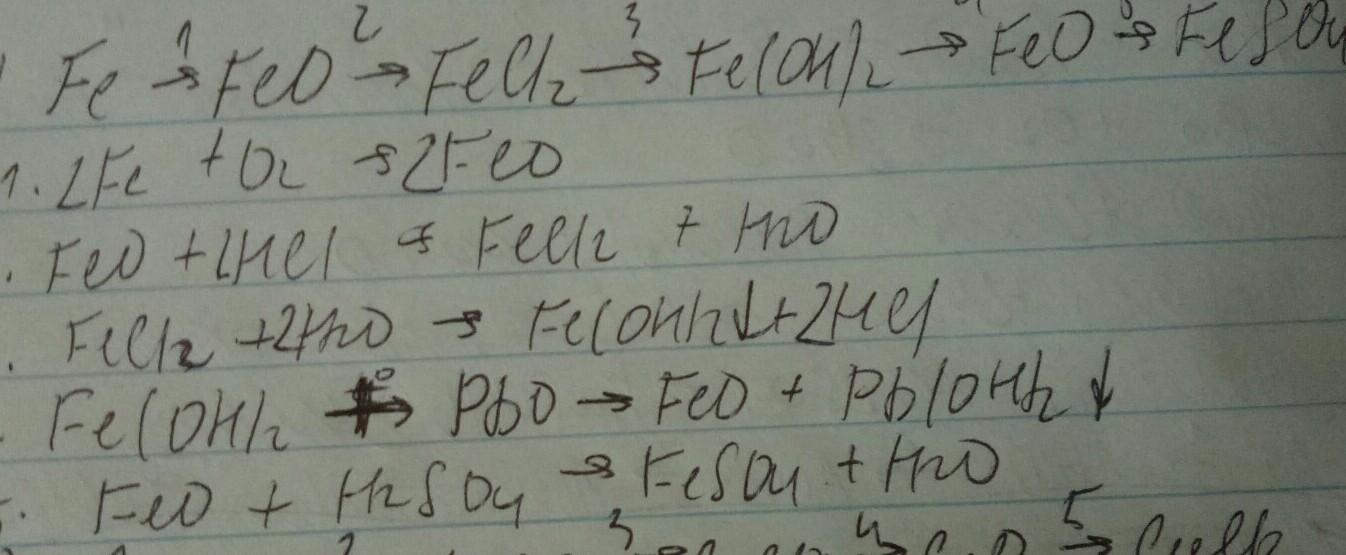 Fe 1→ FeO 2→ FeCl2 3→ Fe(OH)2 → FeO → FeSO4
1. 2Fe + O2 → 2FeO
. FeO + 2HCl → FeCl2 + H2O
. FeCl2 + 2H2O → Fe(OH)2↓ + 2HCl
Fe(OH)2 → PbO → FeO + Pb(OH)2↓
5. FeO + H2SO4 → FeSO4 + H2O
3 4→ 5→